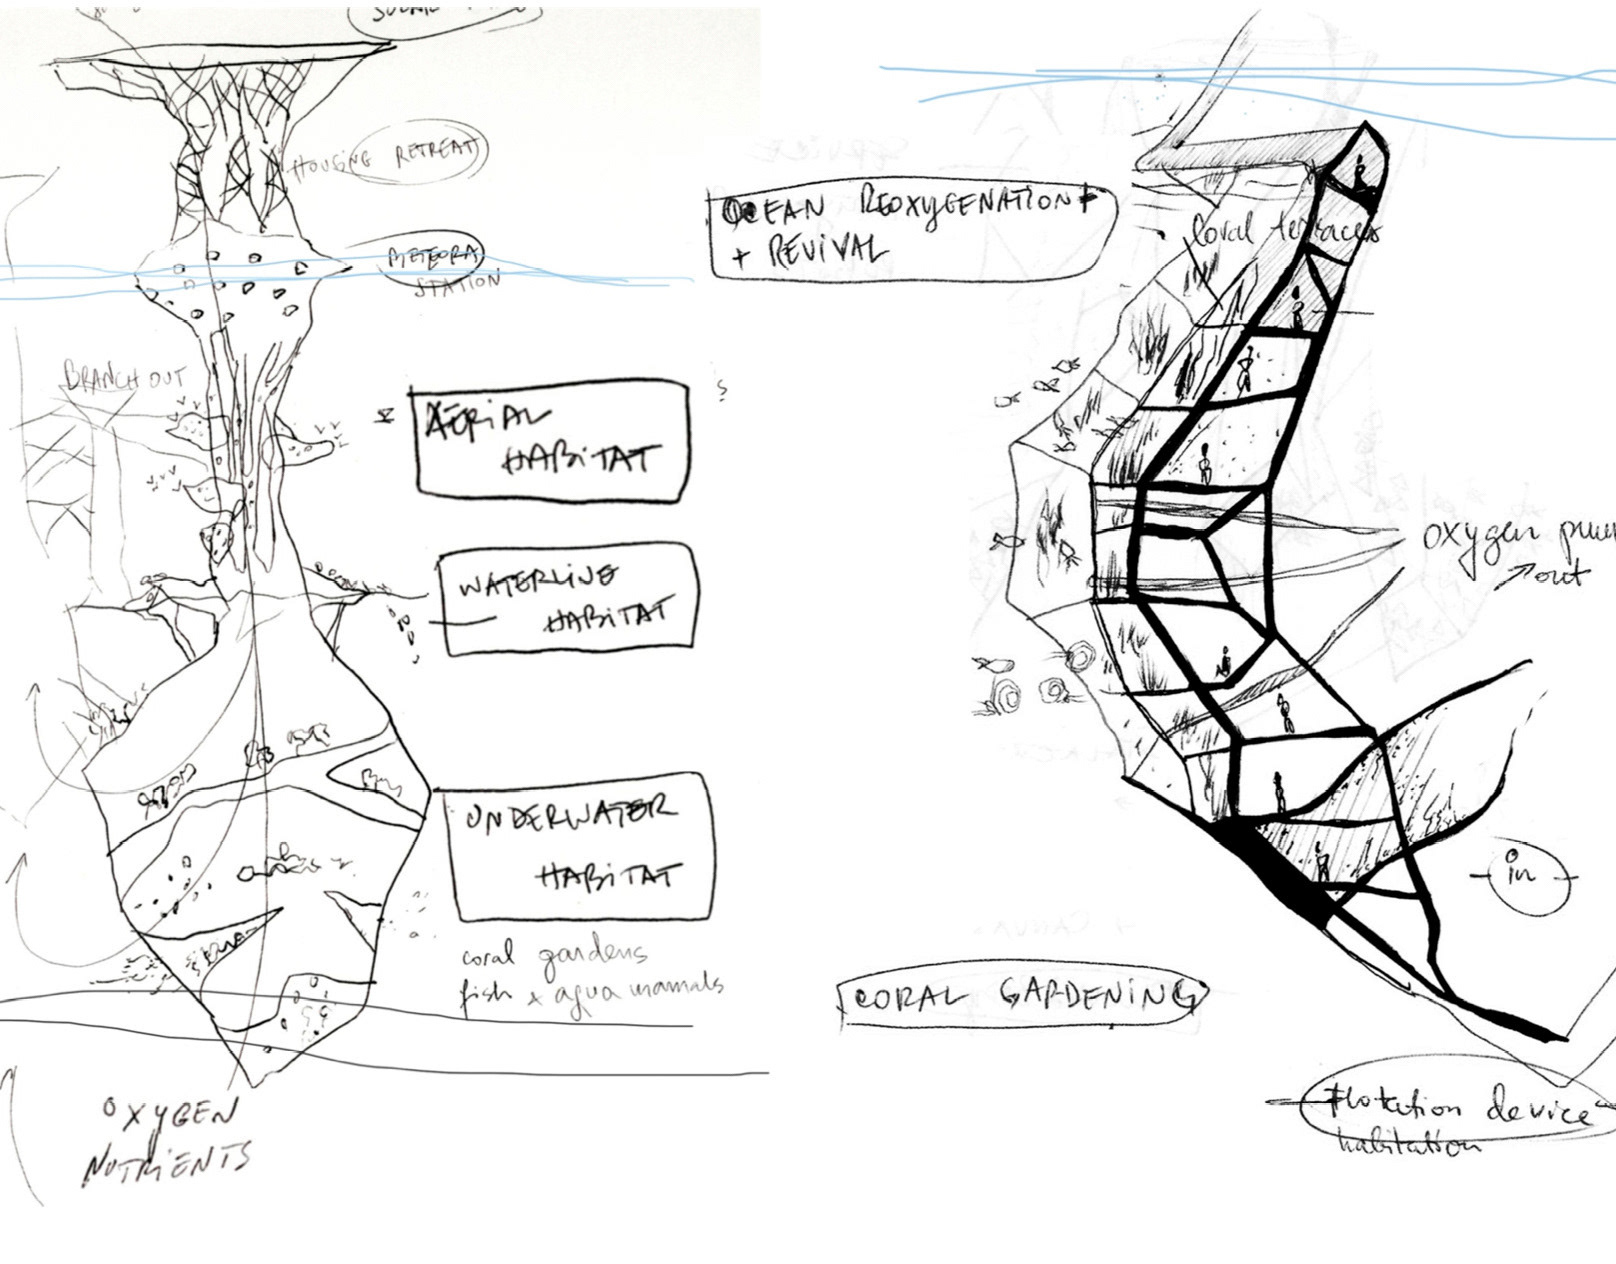 HOUSING RETREAT
METEORA
STATION
BRANCH OUT
AERIAL
HABITAT
WATERLINE
HABITAT
UNDERWATER
HABITAT
coral gardens
fish x aqua mamals
OXYGEN
NUTRIENTS
OCEAN REOXYGENATION
+ REVIVAL
Coral terraces
oxygen
out
in
CORAL GARDENING
Flotation device
habitation